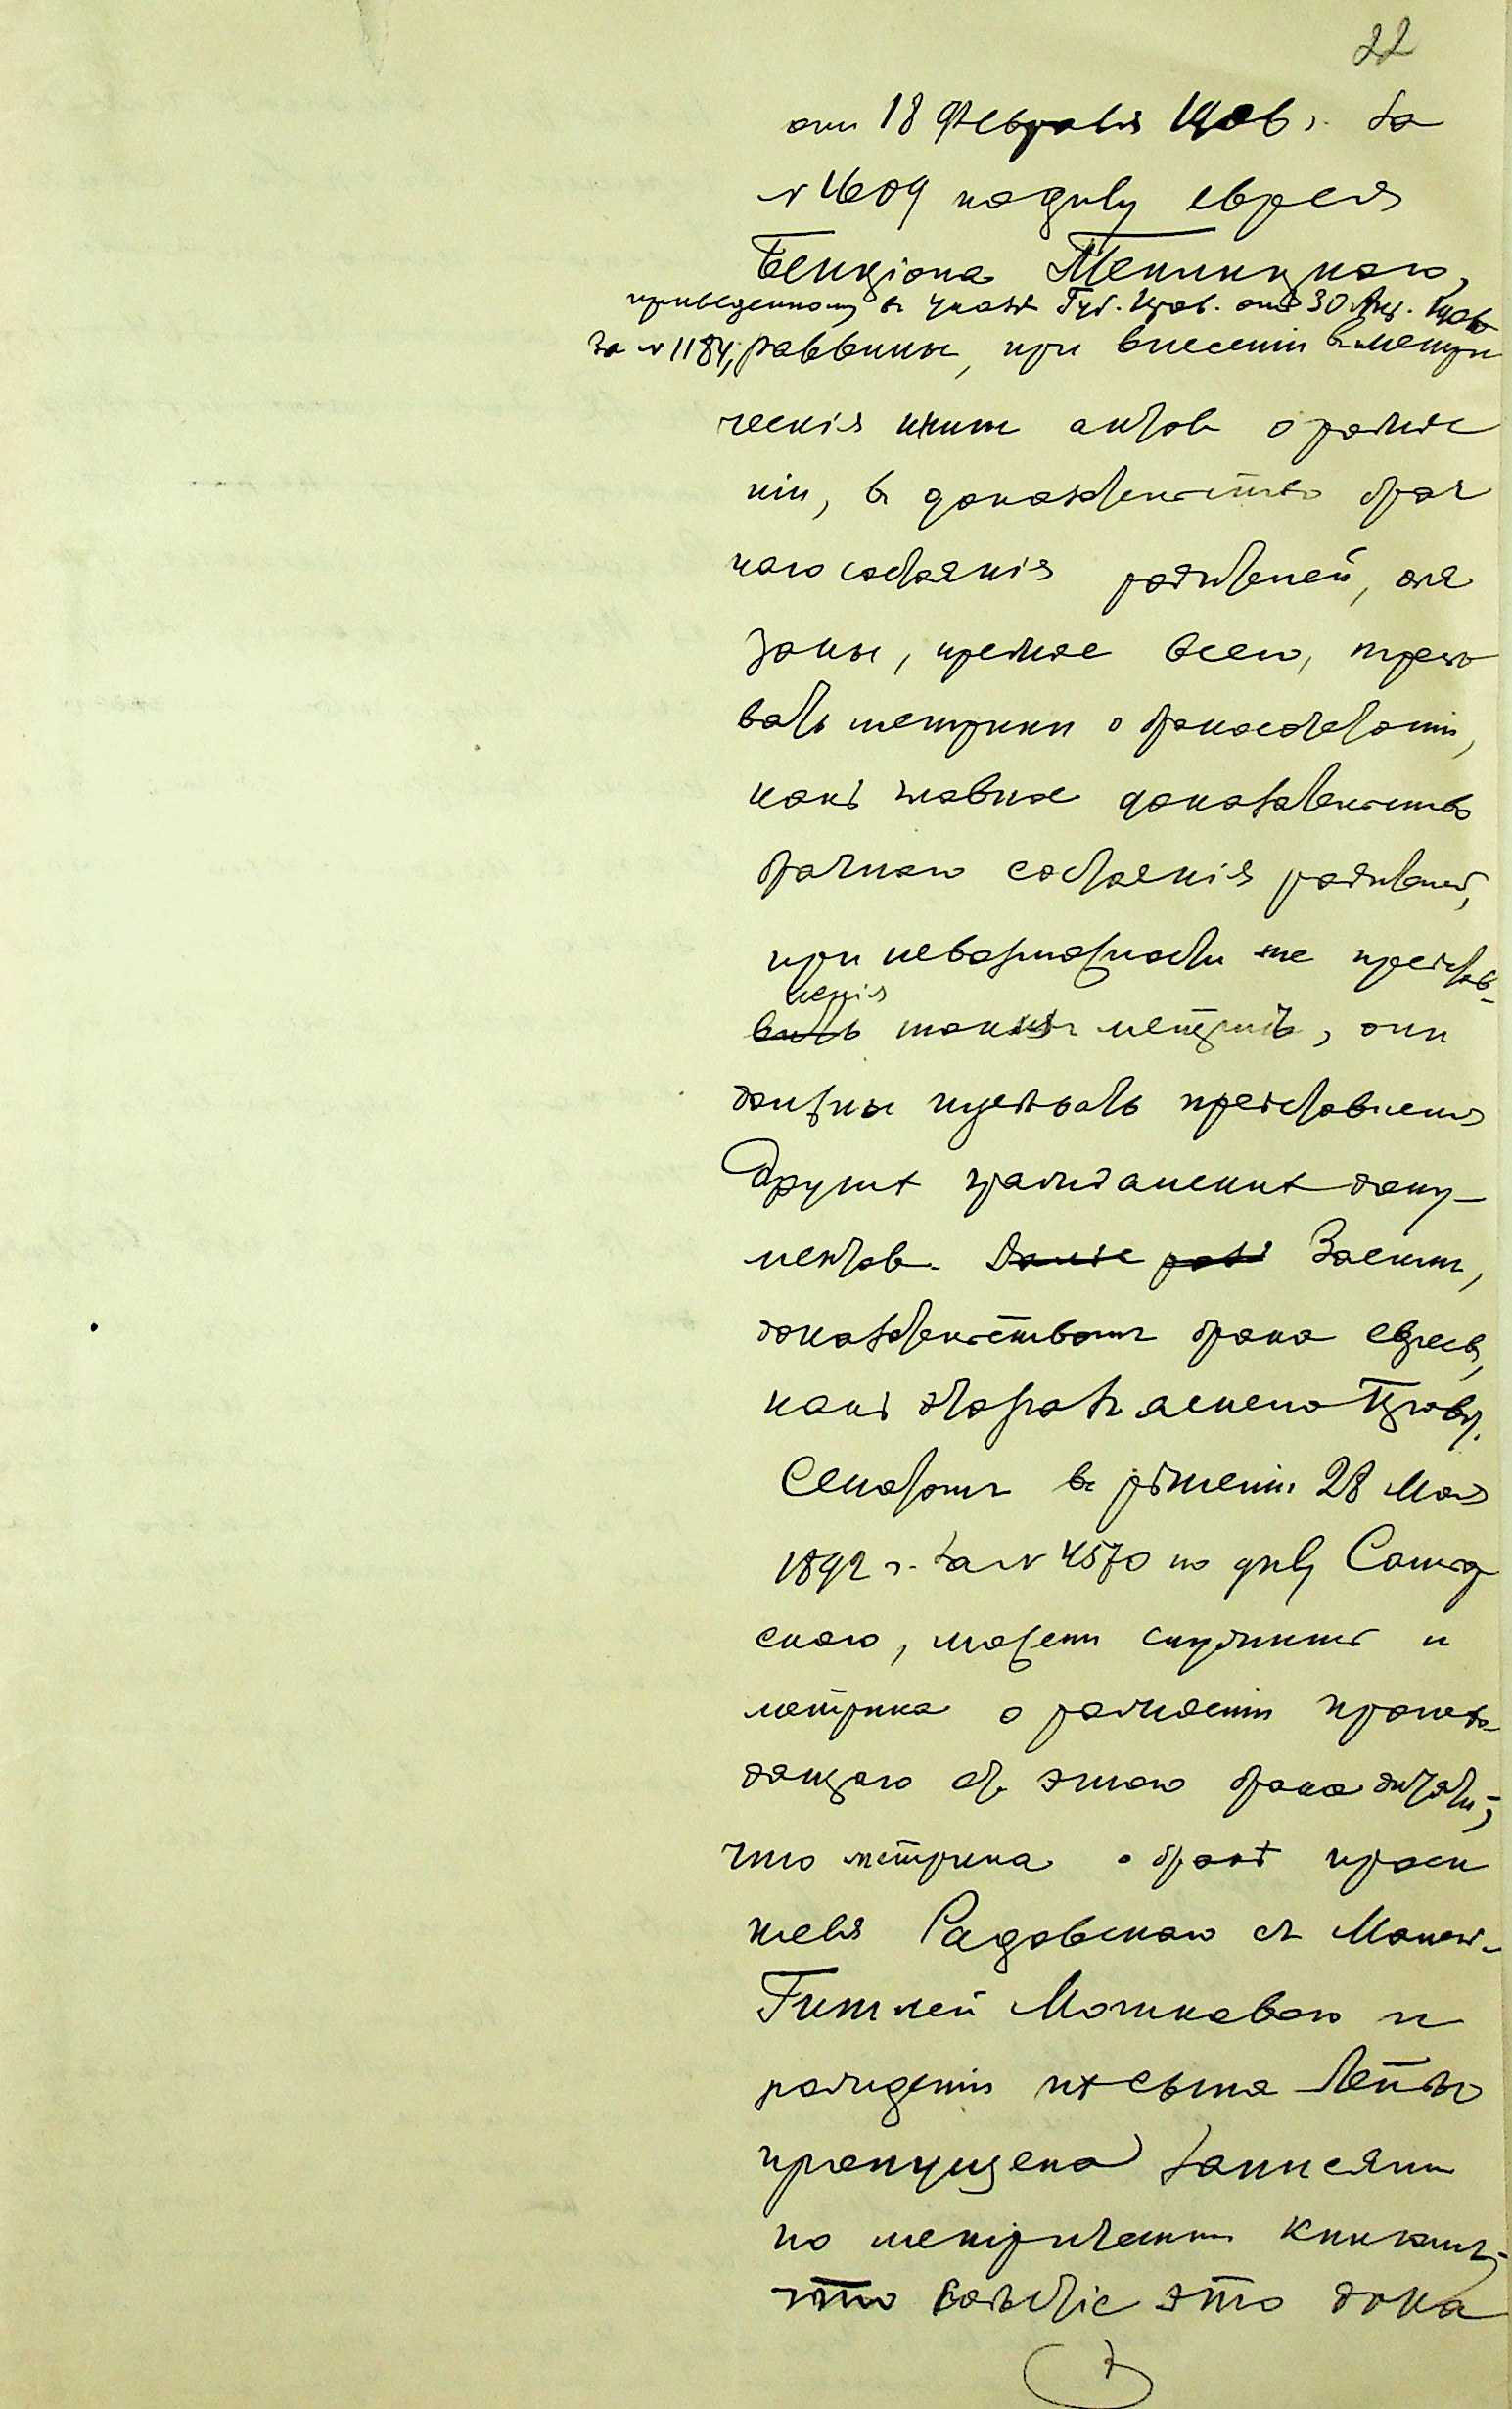 22
от 18 Февраля 1906 г. за
№ 1609 по делу еврея
Бенціона Теплицкаго,
приведенному в указе Губ. Прав. от 30 Янв. 1906
за № 1184, раввины, при внесеніи в метри
ческія книги актов о рожде
ніи, в доказательство брач
наго состоянія родителей, обя
заны, прежде всего, требо
вать метрики о бракосочетаніи,
какъ главное доказательство
брачнаго состоянія родителей,
при невозможности же представ-
ленія
вить таких метрик, они
должны требовать представленія
других гражданских доку-
ментов. Далее раз Засим,
доказательством брака евреев,
какъ это разъяснено Прав.
Сенатом в решеніи 28 Мая
1892 г. за № 4570 по делу
скаго, может служить и
метрика о рожденіи происхо
дящаго от этого брака дитяти;
что метрика о браке проси
теля Радовскаго с
Гитлей Мошковою и
рожденіи их сына Лейбы
пропущена записями
по метрическим книгам;
что вследствіе это дока